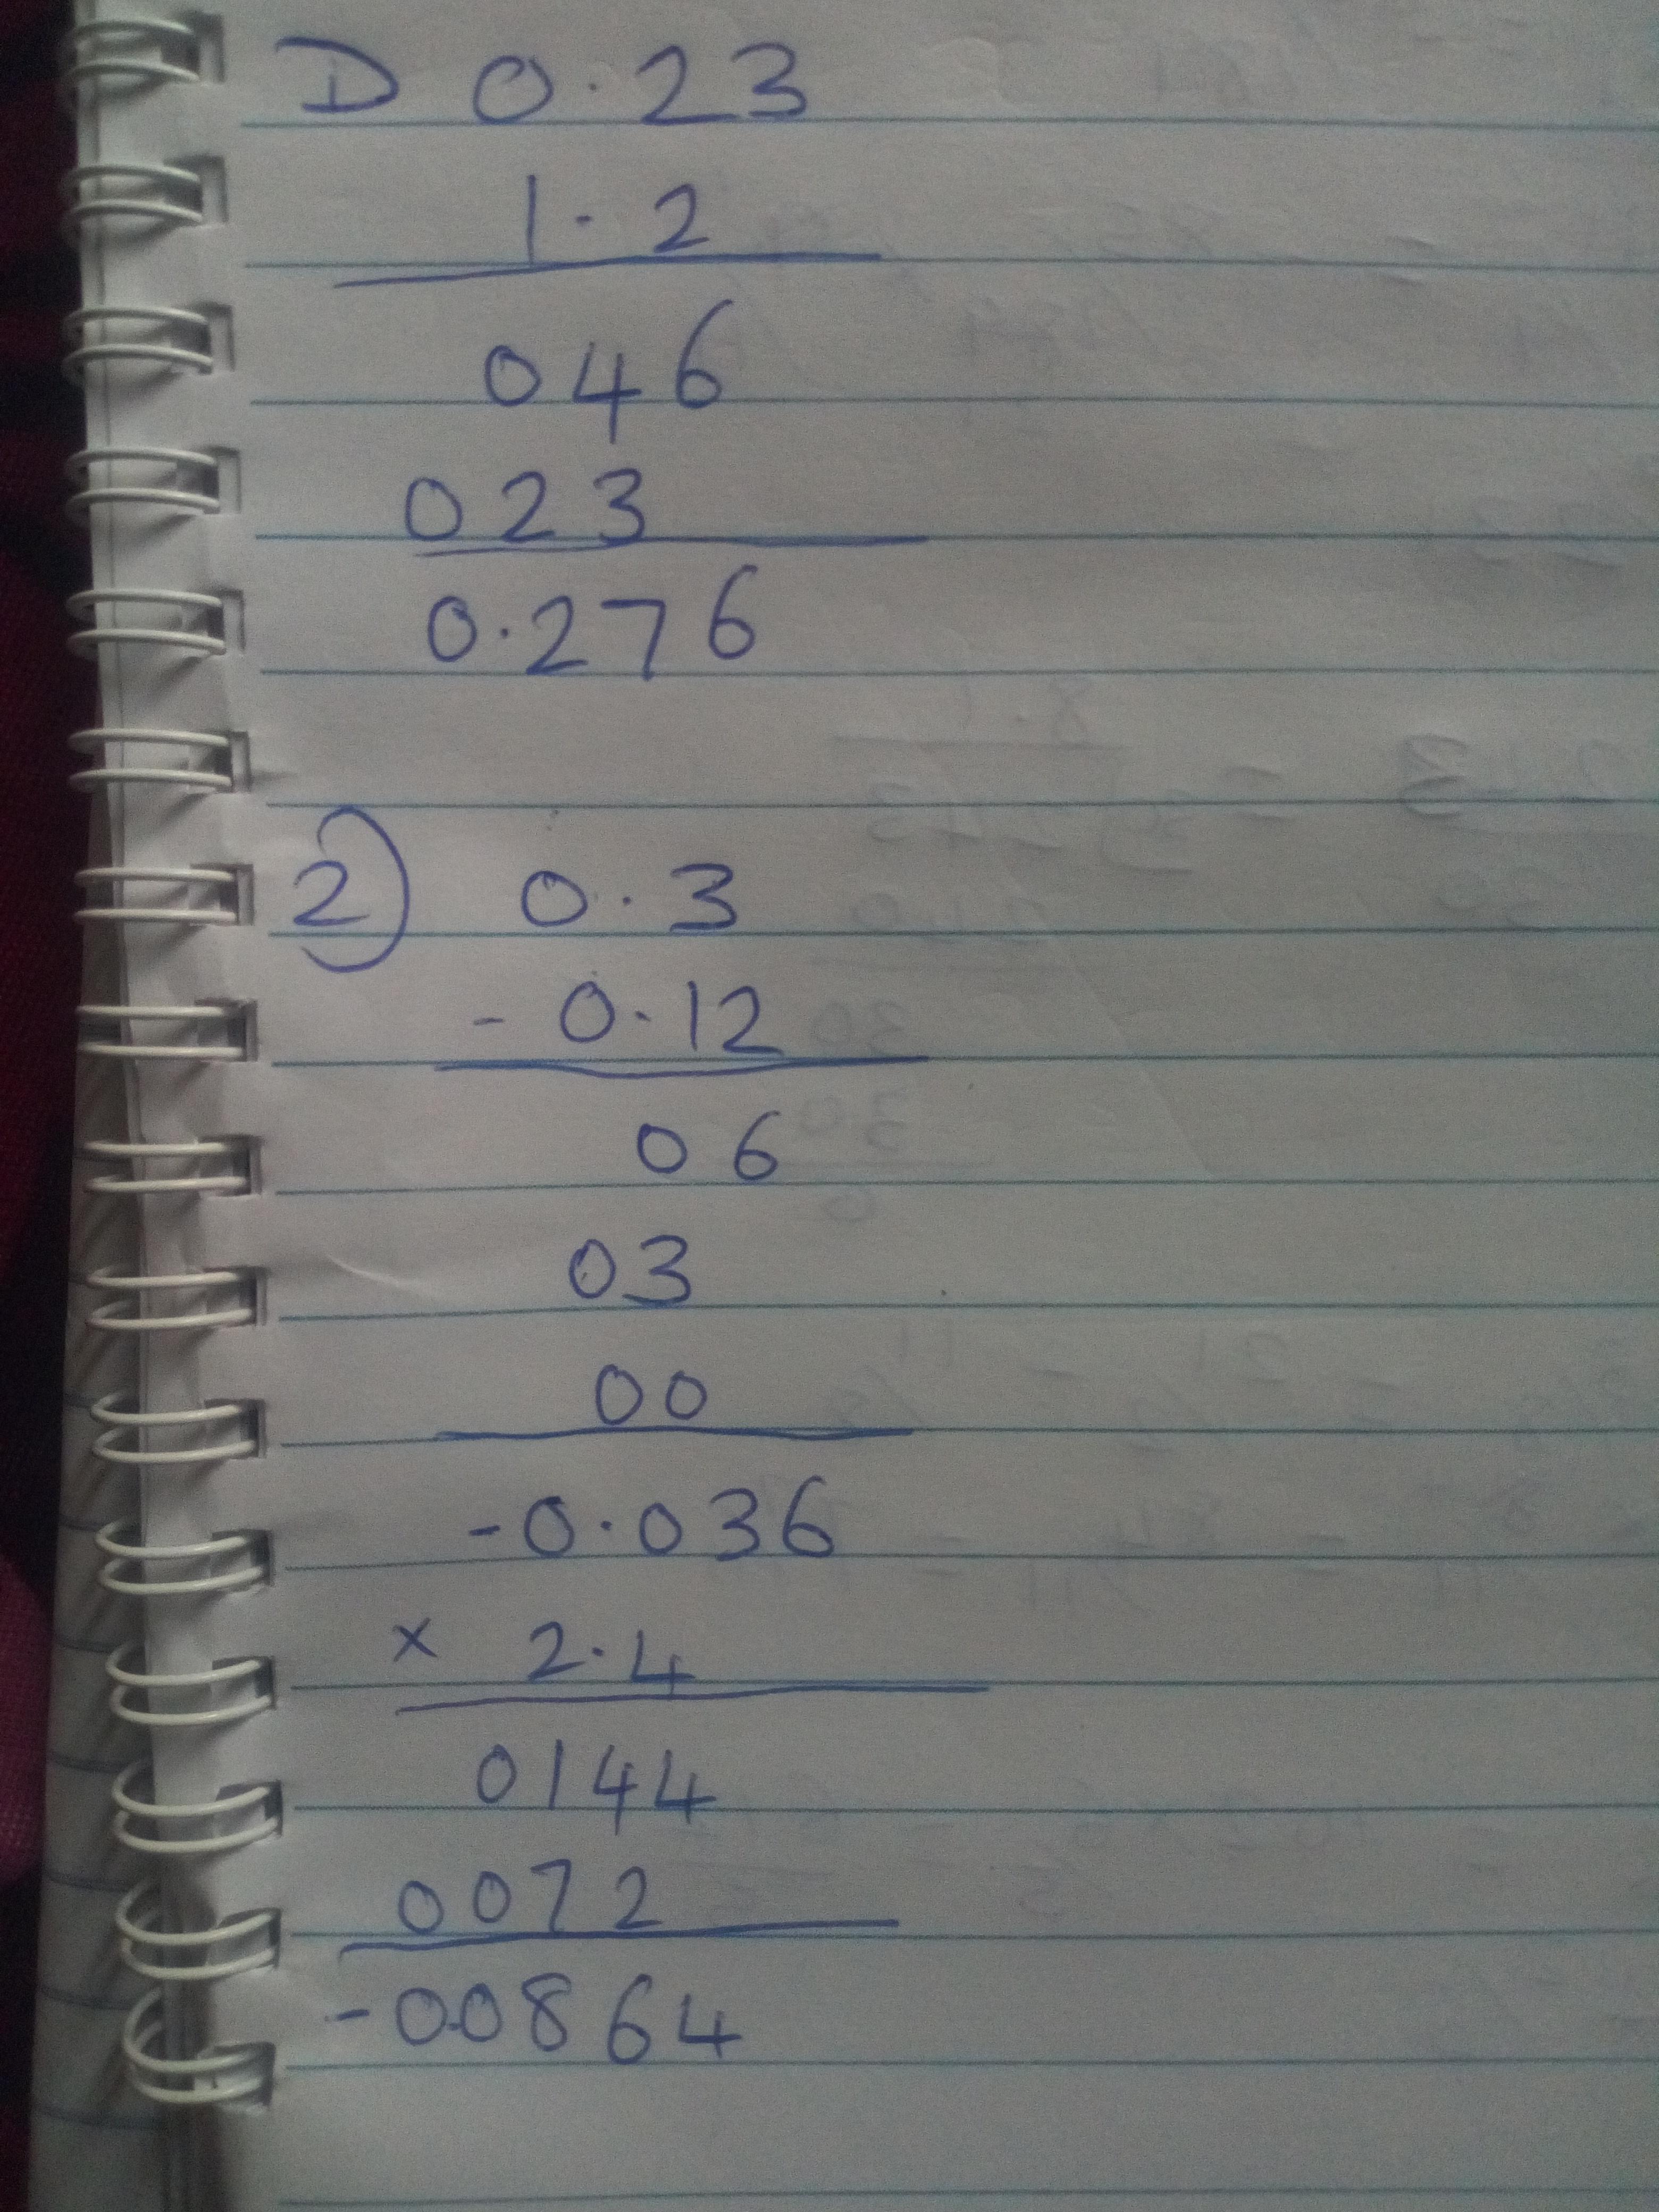 1) 0.23
1.2
046
023
0.276
2) 0.3
- 0.12
06
03
00
-0.036
x 2.4
0144
0072
-0.0864